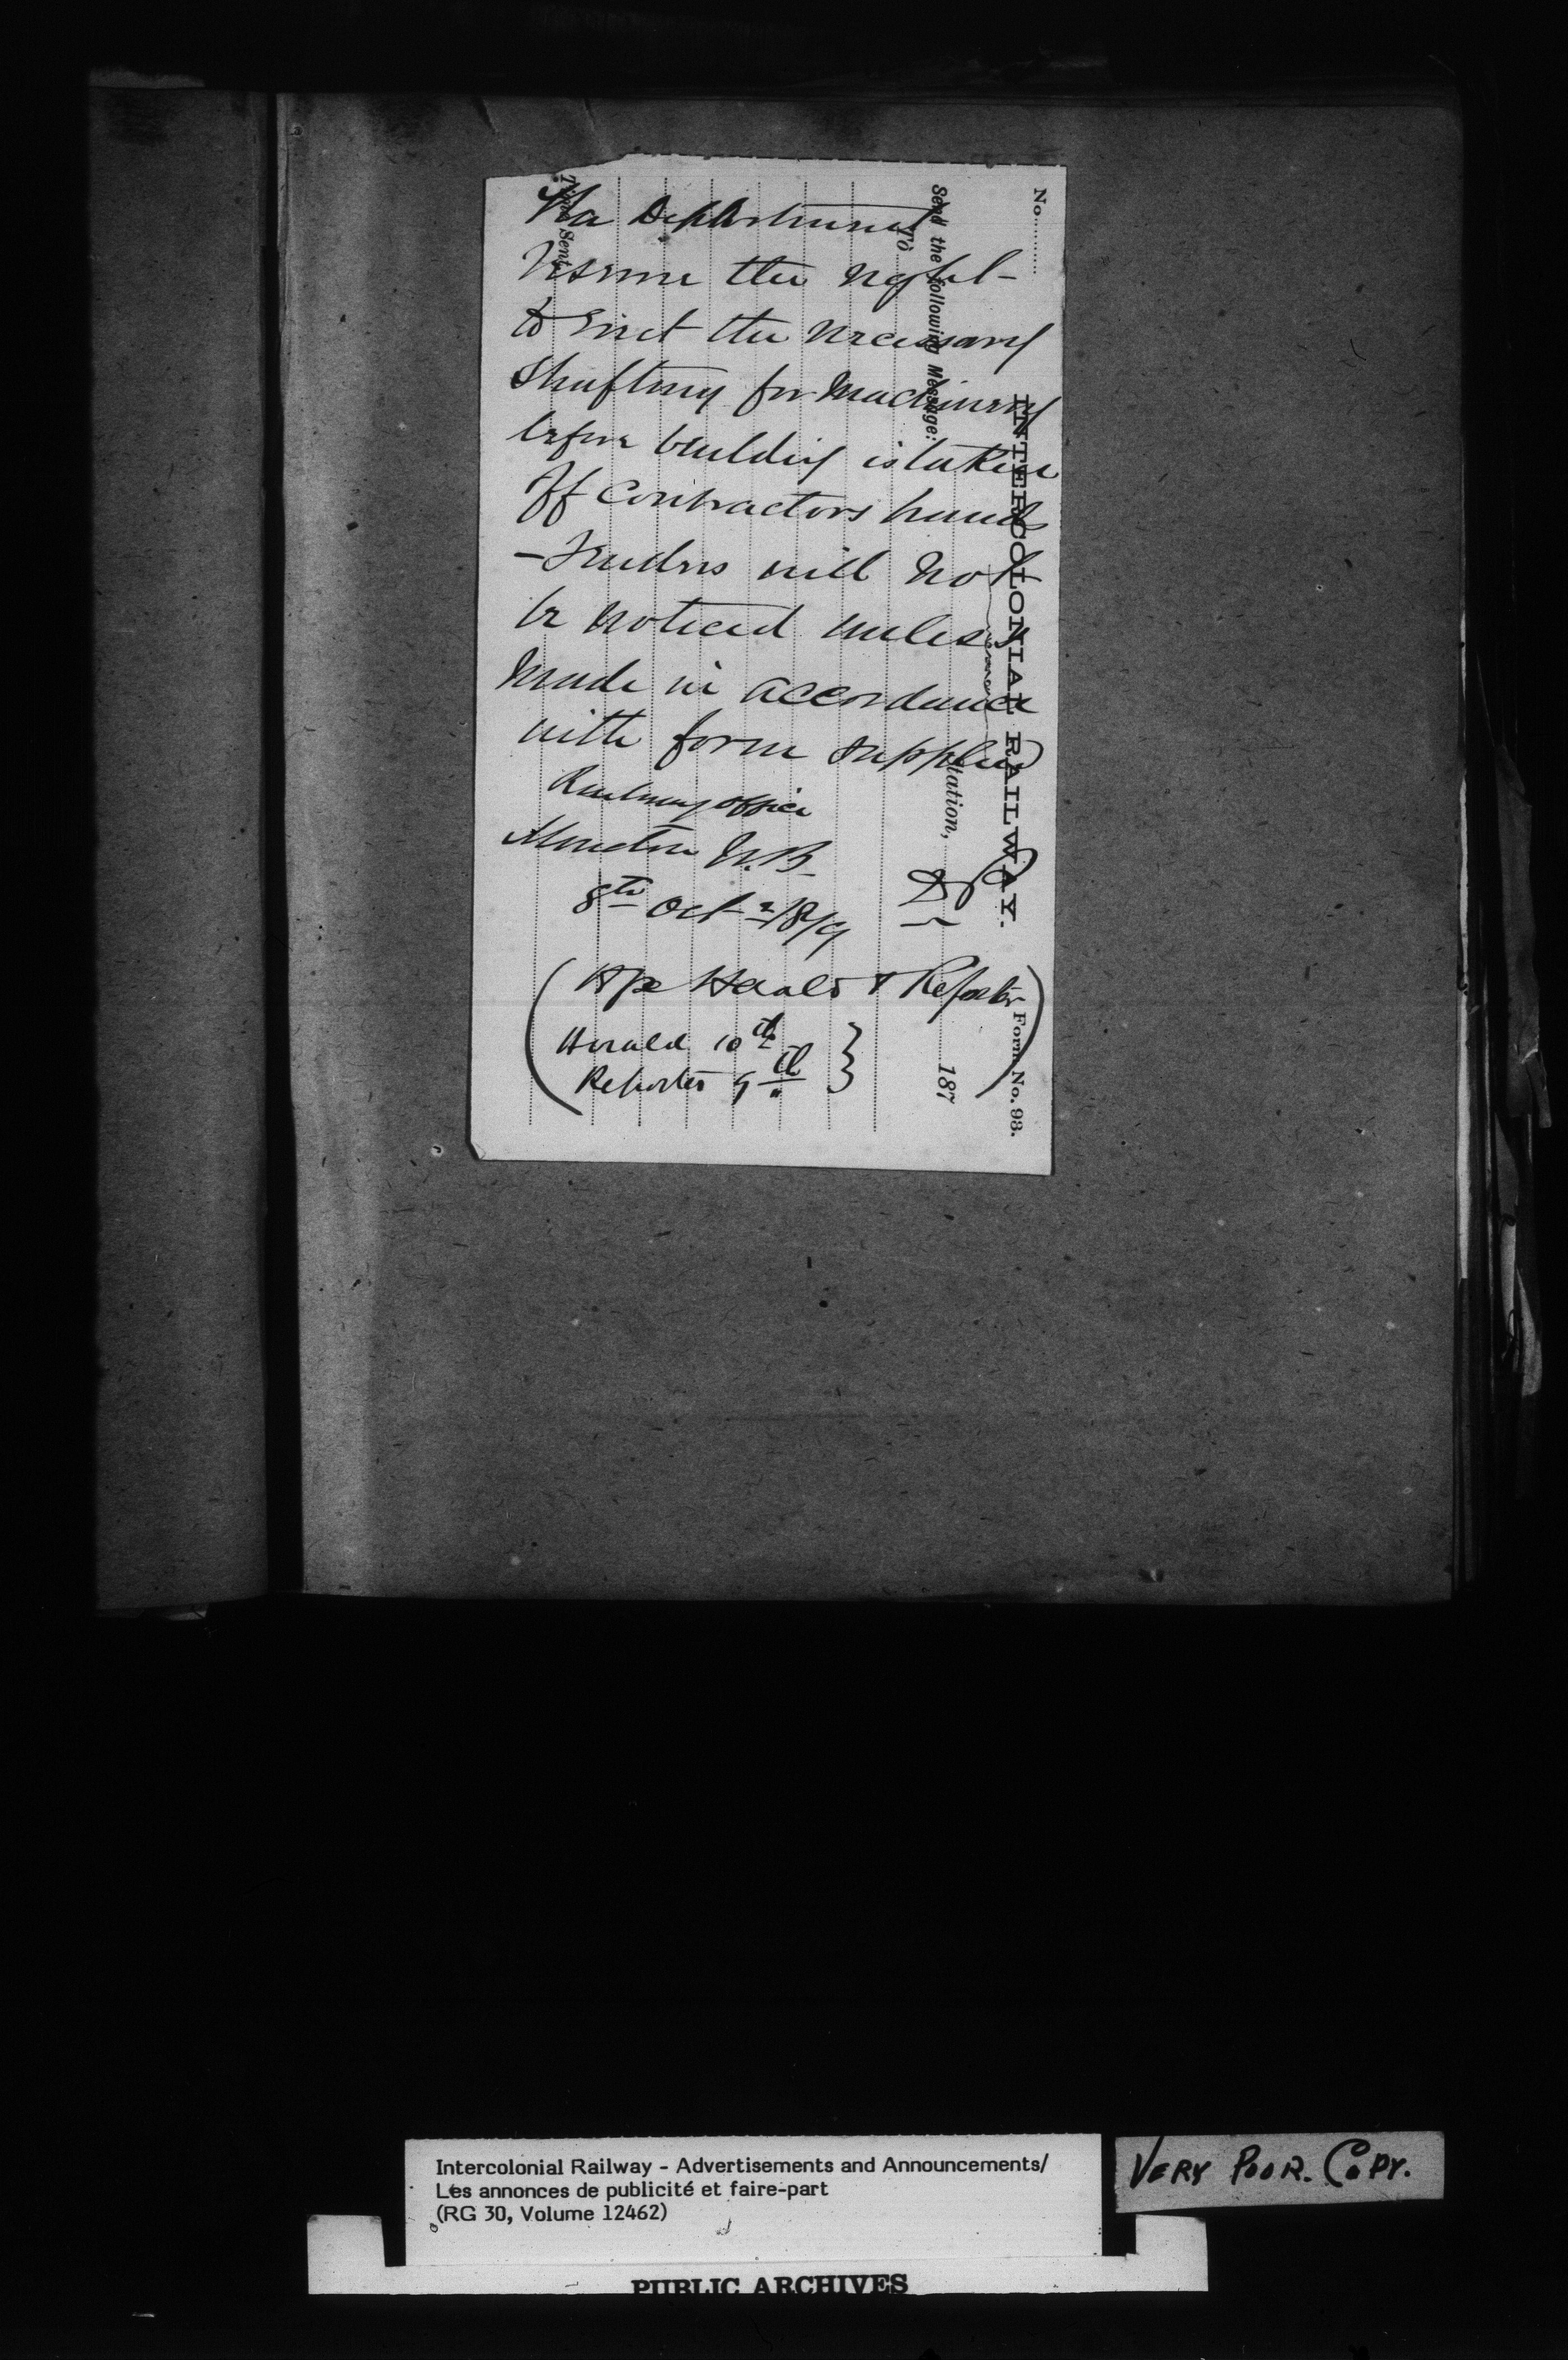 The Department
reserve the right
to erect the necessary
Shafting for Machinery
before building is taken
off Contractors hands
– Tenders will not
be noticed unless
made in accordance
with form supplied
Railway office
Moncton N.B.
8th Oct 1879
Herald & Reporter
Herald 10th
Reporter 9th
No..........
INTERCOLONIAL RAILWAY.
Form No. 93.
Station,
187
Send the following Message:
To
Time Sent
Intercolonial Railway - Advertisements and Announcements/
Les annonces de publicité et faire-part
(RG 30, Volume 12462)
VERY POOR. COPY.
PUBLIC ARCHIVES